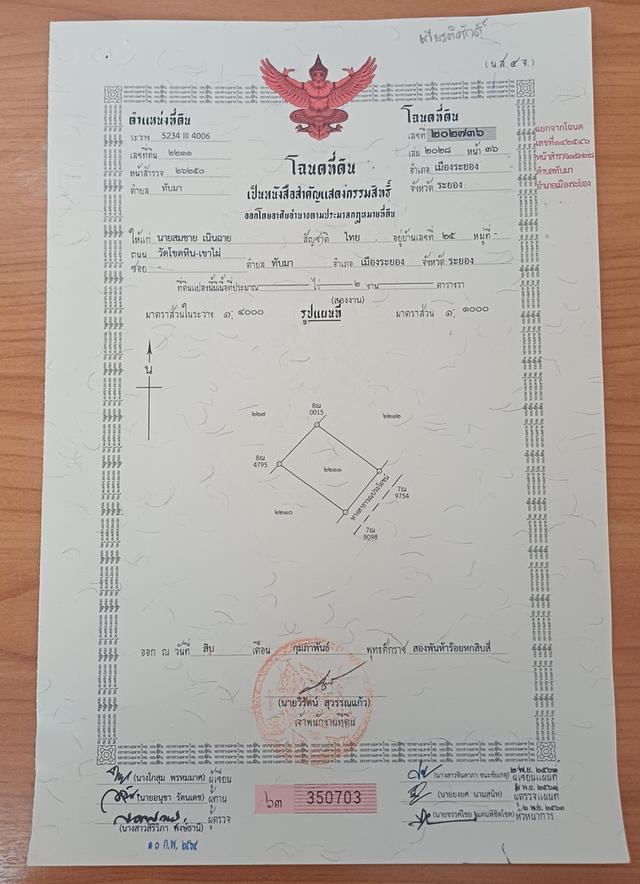 เกียรติศักดิ์
(น.ส.๔ จ.)
ตำแหน่งที่ดิน
ระวาง 5234 III 4006
เลขที่ดิน ๒๒๑๑
หน้าสำรวจ ๒๖๒๕๐
ตำบล ทับมา
โฉนดที่ดิน
เลขที่ ๒๐๒๗๓๖
เล่ม ๒๐๒๘ หน้า ๓๖
อำเภอ เมืองระยอง
จังหวัด ระยอง
แยกจากโฉนด
เลขที่๑๔๒๕๔๖
หน้าสำรวจ
ตำบลทับมา
อำเภอเมืองระยอง
โฉนดที่ดิน
เป็นหนังสือสำคัญแสดงกรรมสิทธิ์
ออกโดยอาศัยอำนาจตามประมวลกฎหมายที่ดิน
ให้แก่ นายสมชาย เนินฉาย สัญชาติ ไทย อยู่บ้านเลขที่ ๒๕ หมู่ที่ -
ถนน วัดโขดหิน-เขาไผ่
ซอย - ตำบล ทับมา อำเภอ เมืองระยอง จังหวัด ระยอง
ที่ดินแปลงนี้มีเนื้อที่ประมาณ - ไร่ ๒ งาน - ตารางวา
(สองงาน)
มาตราส่วนในระวาง ๑: ๔๐๐๐ รูปแผนที่ มาตราส่วน ๑: ๑๐๐๐
น
๒๒๗
8ณ
0015
๒๒๑๒
8ณ
4795
๒๒๑๑
7ณ
9754
ทางสาธารณประโยชน์
๒๒๑๐
7ณ
9098
ออก ณ วันที่ สิบ เดือน กุมภาพันธ์ พุทธศักราช สองพันห้าร้อยหกสิบสี่
(นายวิรัตน์ สุวรรณแก้ว)
เจ้าพนักงานที่ดิน
(นางโกสุม พรหมมาศ) ผู้เขียน
(นายอนุชา รัตนเดช) ผู้ทาน
(นางสาวสิริวิภา พงษ์ธานี) ผู้ตรวจ
๑๐ ก.พ. ๒๕๖๔
๖๓ 350703
(นางสาวจินดาภา ชนะชัยเกตุ) ผู้เขียนแผนที่
(นายยงยศ นามสนิท) ผู้ตรวจแผนที่
๒ พ.ย. ๒๕๖๓